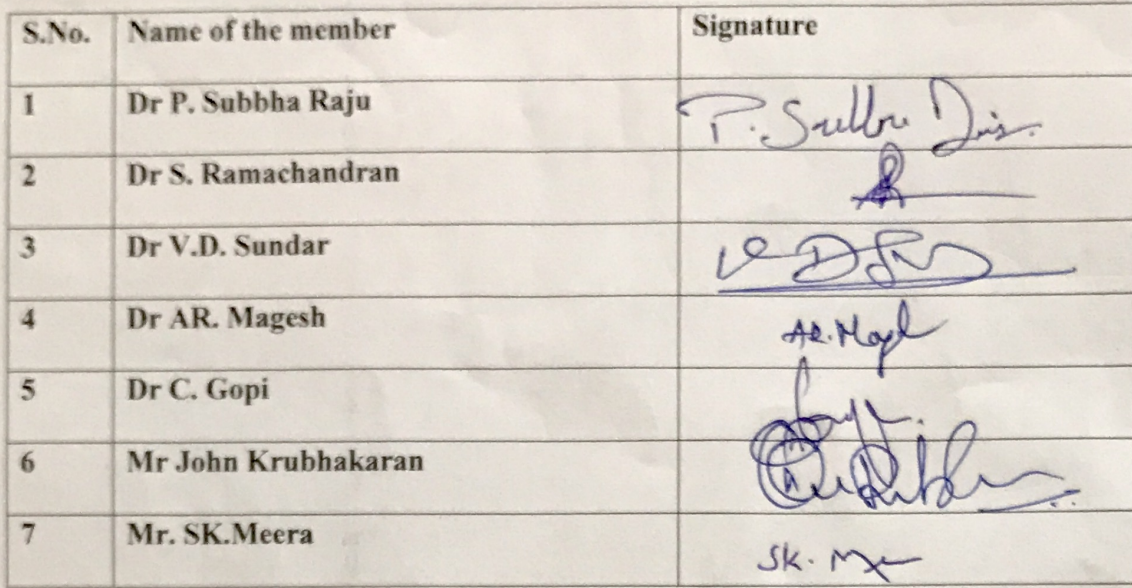 S.No. Name of the member Signature
1 Dr P. Subbha Raju P.
2 Dr S. Ramachandran
3 Dr V.D. Sundar V D
4 Dr AR. Magesh AR.
5 Dr C. Gopi
6 Mr John Krubhakaran
7 Mr. SK.Meera SK.